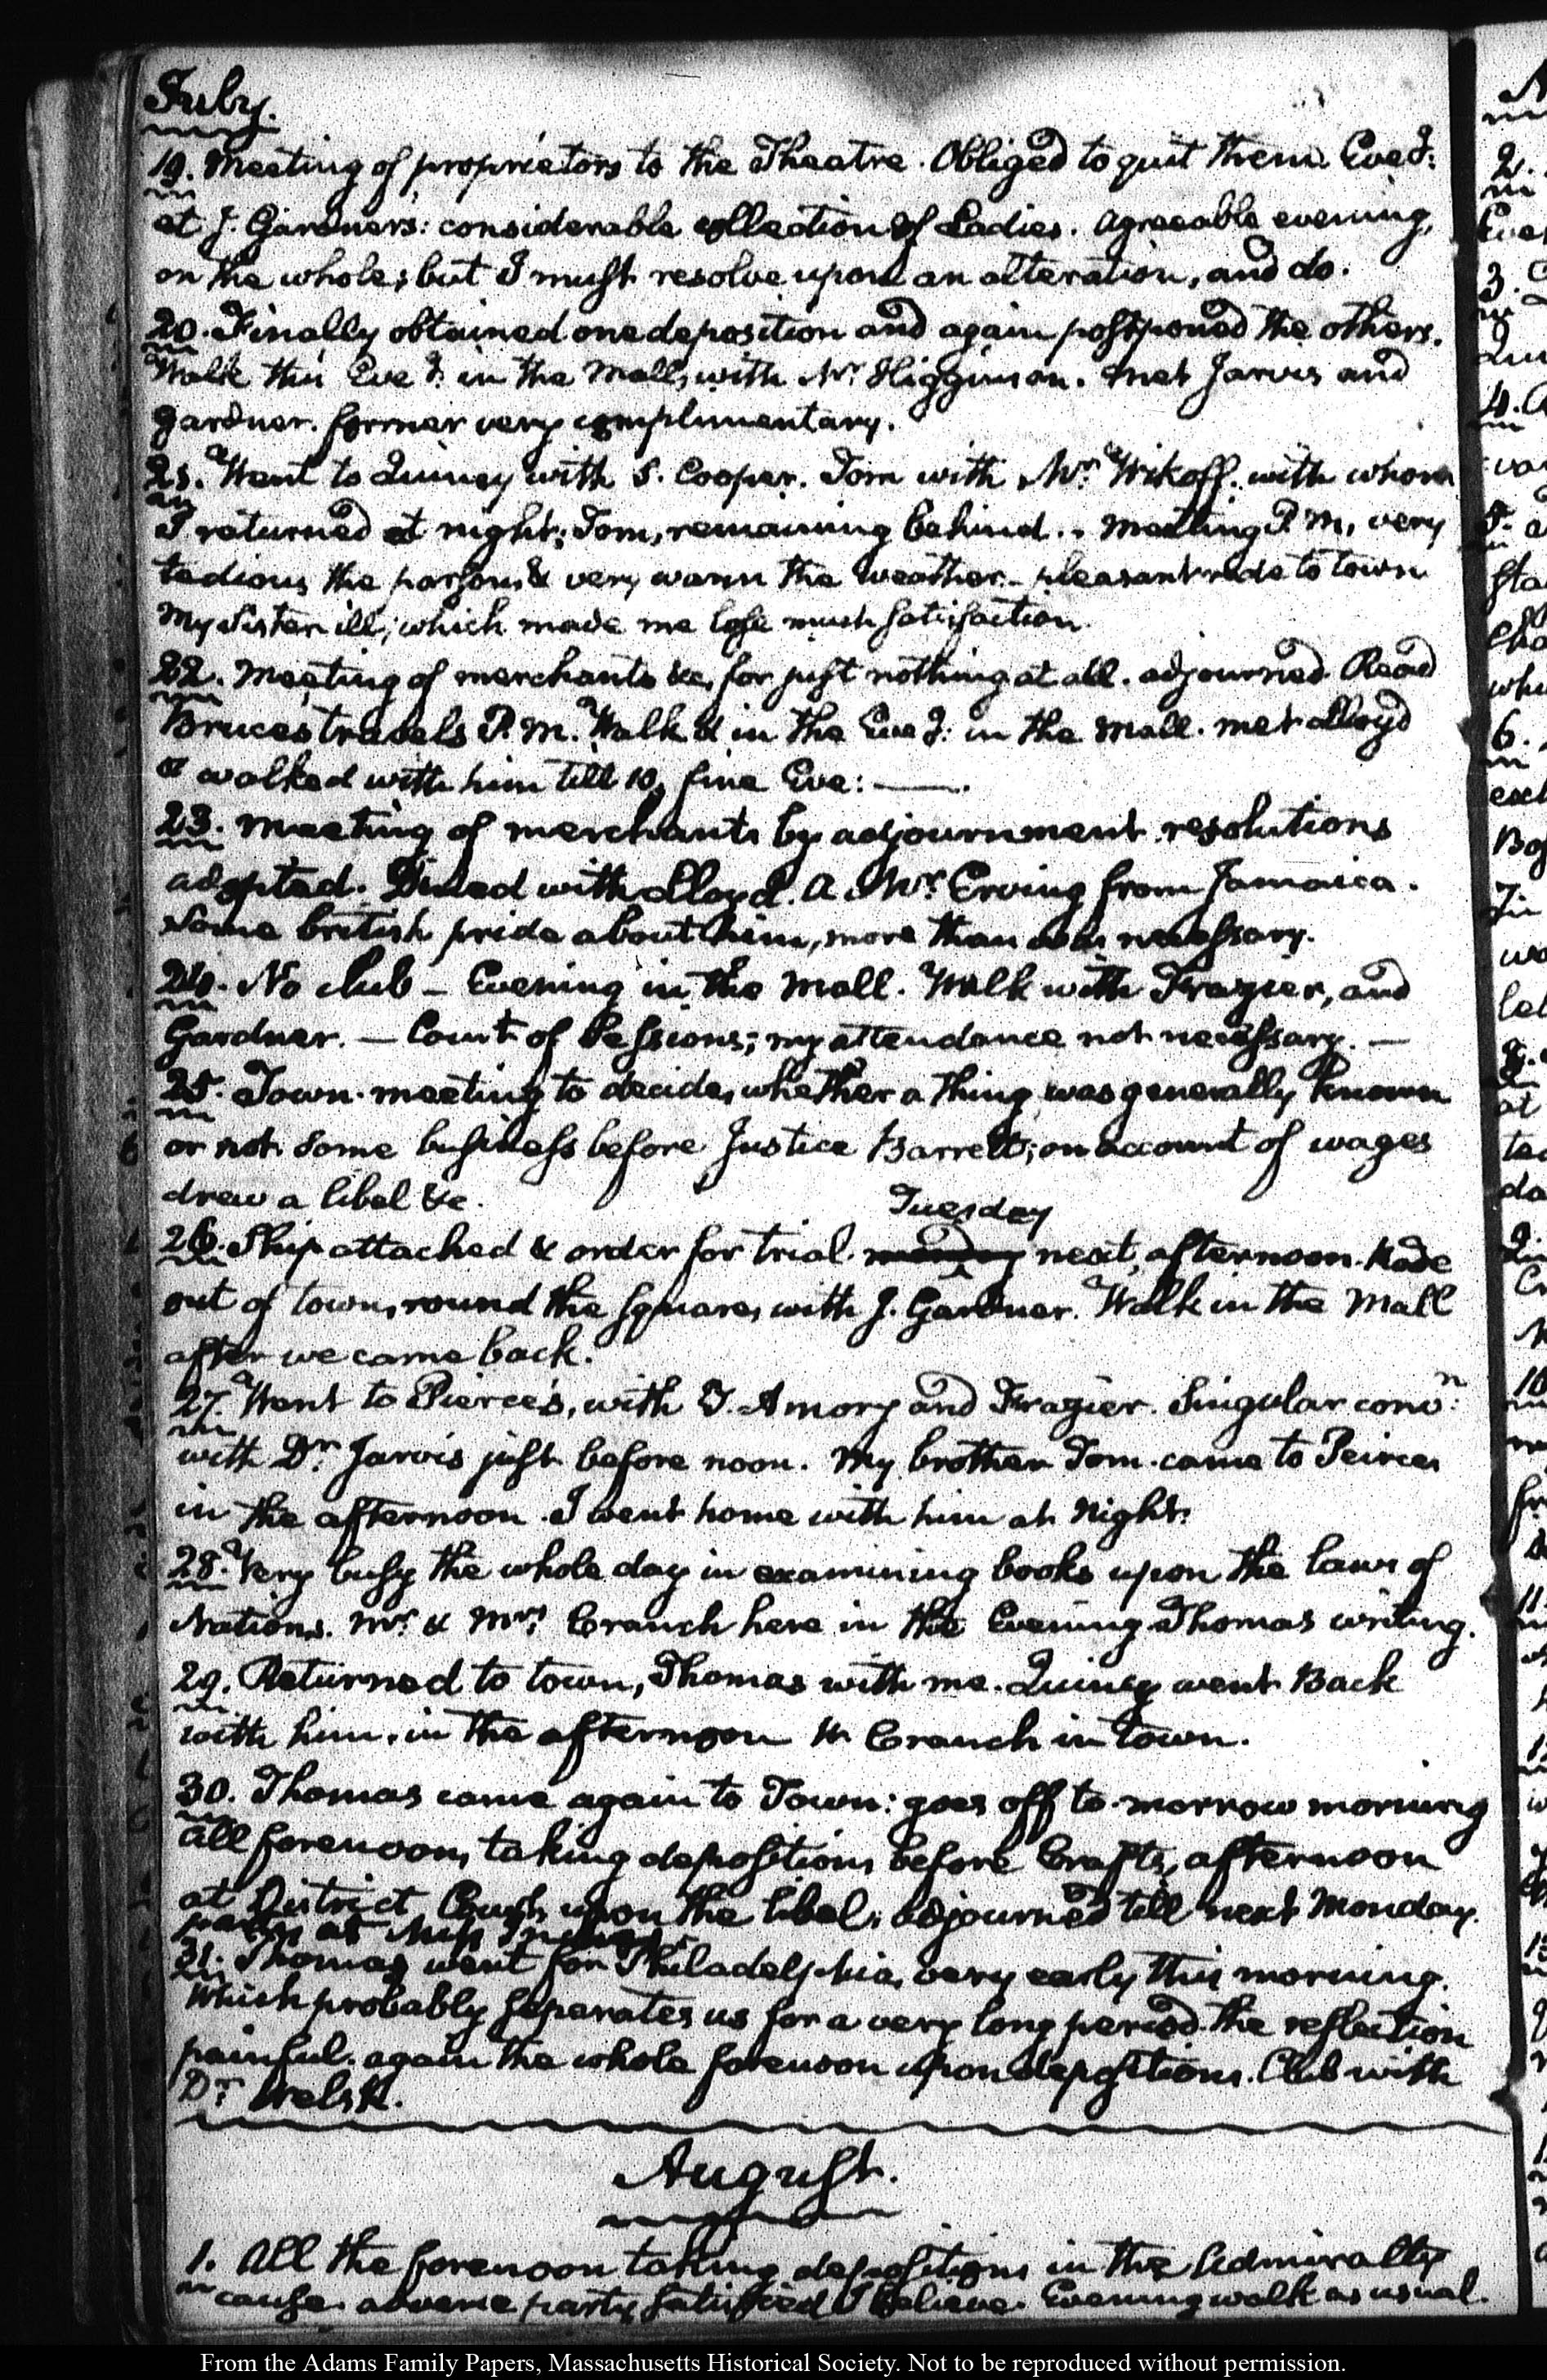 July.
19. Meeting of proprietors to the Theatre. Obliged to quit them. Eveg:
at J. Gardner's: considerable collection of Ladies. agreeable evening,
on the whole; but I must resolve upon an alteration, and do.
20. Finally obtained one deposition and again postponed the others.
Walk this Eveg: in the Mall, with Mr. Higginson. met Jarvis and
Gardner. former very complimentary.
21. Went to Quincy with S. Cooper. Tom with Mr. Wikoff. with whom
I returned at night; Tom, remaining behind. Meeting P.M, very
tedious the parson, & very warm the weather. pleasant ride to town
My Sister ill; which made me lose much satisfaction.
22. Meeting of merchants &c, for just nothing at all. adjourned. Read
Bruce's travels P.M. Walk'd in the Eveg: in the Mall. met Lloyd
& walked with him till 10, fine Eve: —.
23. Meeting of merchants by adjournment. resolutions
adopted. Dined with Lloyd. A Mr. Erving from Jamaica.
Some british pride about him, more than was necessary.
24. No club — Evening in the Mall. Walk with Frazier, and
Gardner. — Court of Sessions; my attendance not necessary. —
25. Town-meeting to decide, whether a thing was generally known
or not. Some business before Justice Barrett; on account of wages
drew a libel &c.
Tuesday
26. Ship attached & order for trial. next, afternoon. Rode
out of town, round the square, with J. Gardner. Walk in the Mall
after we came back.
27. Went to Pierce's, with J. Amory and Frazier. Singular convn:
with Dr. Jarvis just before noon. My brother Tom. came to Peirces
in the afternoon. I went home with him at night.
28. Very busy the whole day in examining books upon the laws of
Nations. Mr. & Mrs. Cranch here in the Evening. Thomas writing.
29. Returned to town, Thomas with me. Quincy went Back
with him. in the afternoon W. Cranch in town.
30. Thomas came again to Town: goes off to-morrow morning
all forenoon, taking depositions before Crafts, afternoon
at District Court, upon the libel; adjourned till next Monday.
party at Miss
31. Thomas went for Philadelphia, very early this morning.
Which probably separates us for a very long period. the reflection
painful. again the whole forenoon upon depositions. Club with
Dr. Welsh.
August.
1. All the forenoon taking depositions in the Admiralty
cause. adverse party satisfied I believe. Evening walk as usual.
From the Adams Family Papers, Massachusetts Historical Society. Not to be reproduced without permission.